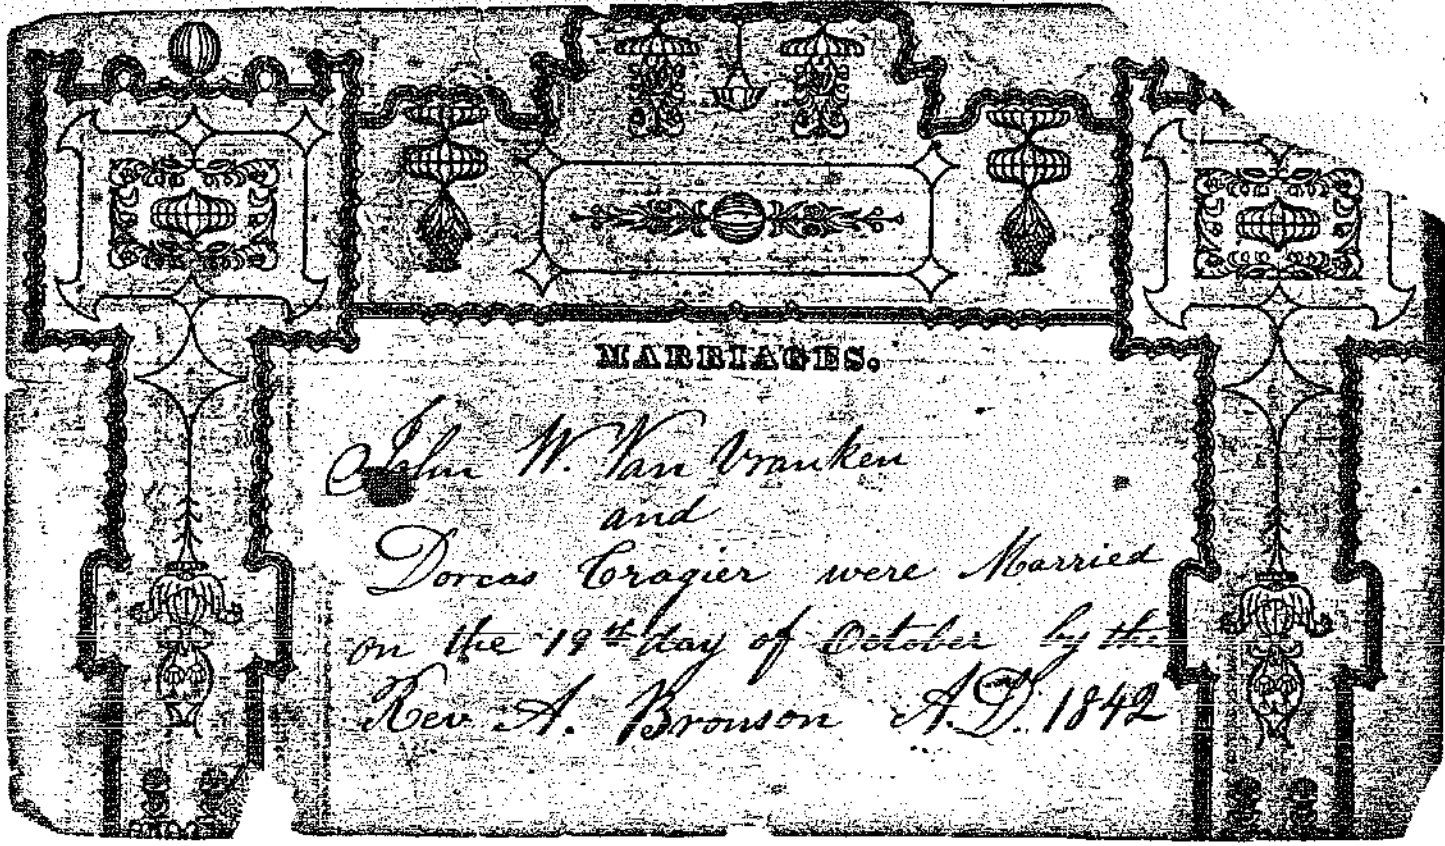 MARRIAGES.
John W. Van Vranken
and
Dorcas Cragier were Married
on the 19th day of October by the
Rev A. Bronson A.D. 1842